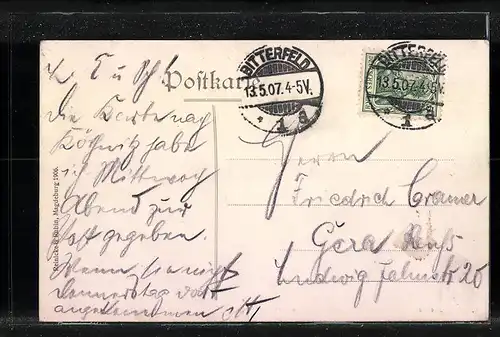 L. E. u. Sch!
Postkarte
BITTERFELD
13.5.07. 4-5V.
* 1 a
BITTERFELD
13.5.07. 4-5V.
1 a
die Karte nach
Köthnitz habe
ich Mittwoch
Abend zur
Post gegeben.
Wenn sie nicht
Donnerstag dort
angekommen
Herrn
Friedrich Cramer
Gera Reuß
Ludwig Jahnstr 20
Magdeburg 1906.